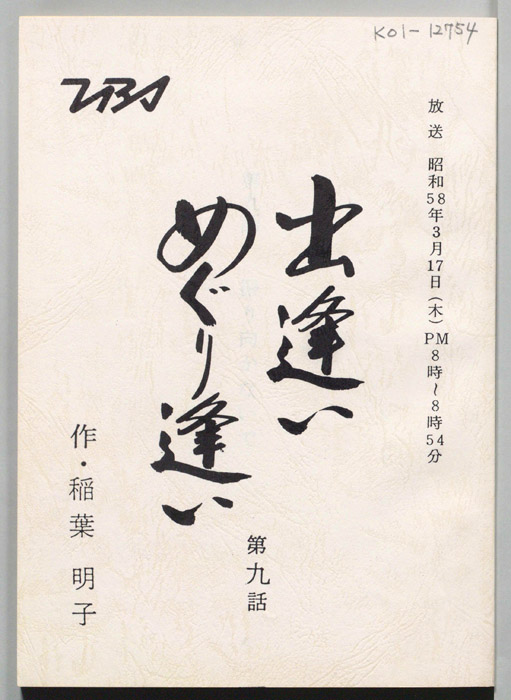 K01-12754
TBS
放送 昭和58年3月17日(木)PM8時~8時54分
出逢い
めぐり逢い
第九話
作・稲葉 明子